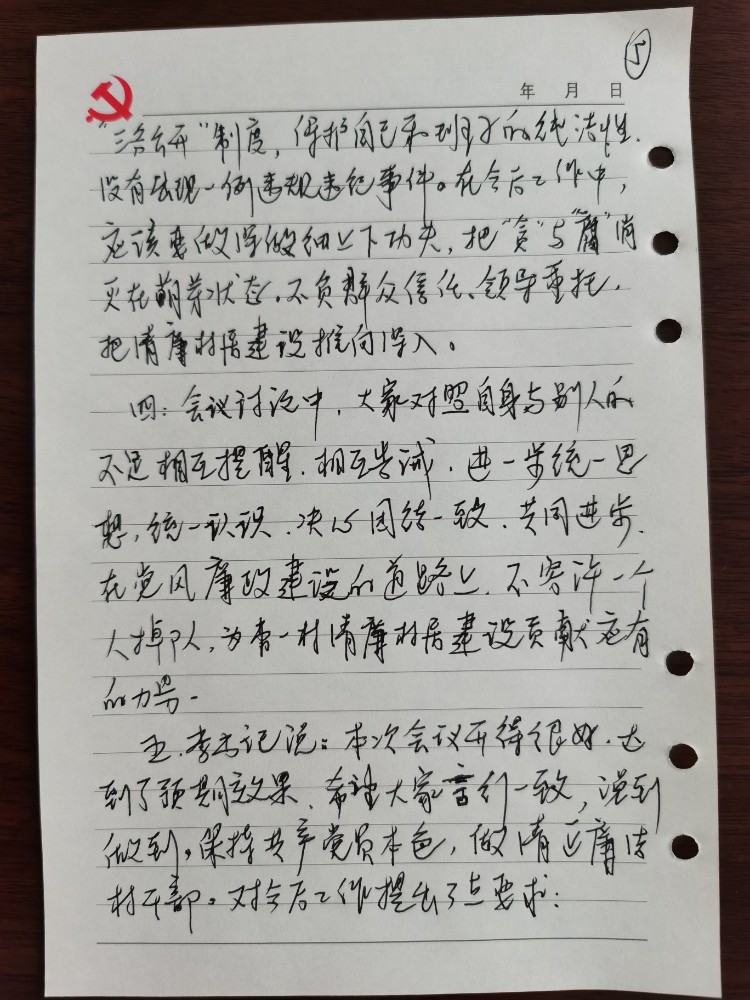 5
年 月 日
"三务公开"制度，保护自己和班子的纯洁性.
没有出现一例违规违纪事件。在今后工作中，
应该要做深做细上下功夫，把"贪"与"腐"消
灭在萌芽状态.不负群众信任、领导重托，
把清廉村居建设推向深入。
四：会议讨论中，大家对照自身与别人的
不足相互提醒.相互告诫.进一步统一思
想，统一认识.决心团结一致.共同进步.
在党风廉政建设的道路上.不容许一个
人掉队，为 一村清廉村居建设贡献应有
的力量.
五.李书记说：本次会议开得很好.达
到了预期效果.希望大家言行一致，说到
做到，保持共产党员本色，做清正廉洁
村干部。对今后工作提出了 点要求：